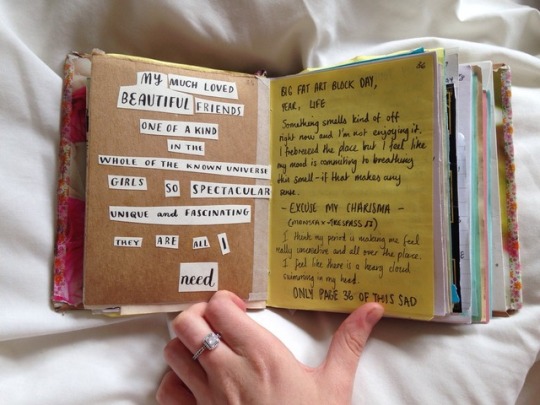 MY MUCH LOVED
BEAUTIFUL FRIENDS
ONE OF A KIND
IN THE
WHOLE OF THE KNOWN UNIVERSE
GIRLS SO SPECTACULAR
UNIQUE and FASCINATING
THEY ARE ALL I
need
36
BIG FAT ART BLOCK DAY,
YEAR, LIFE
Something smells kind of off
right now and I'm not enjoying it.
I febreezed the place but I feel like
my mood is committing to breathing
this smell - if that makes any
sense.
- EXCUSE MY CHARISMA -
I think my period is making me feel
really uncreative and all over the place.
I feel like there is a heavy cloud
swimming in my head.
ONLY PAGE 36 OF THIS SAD